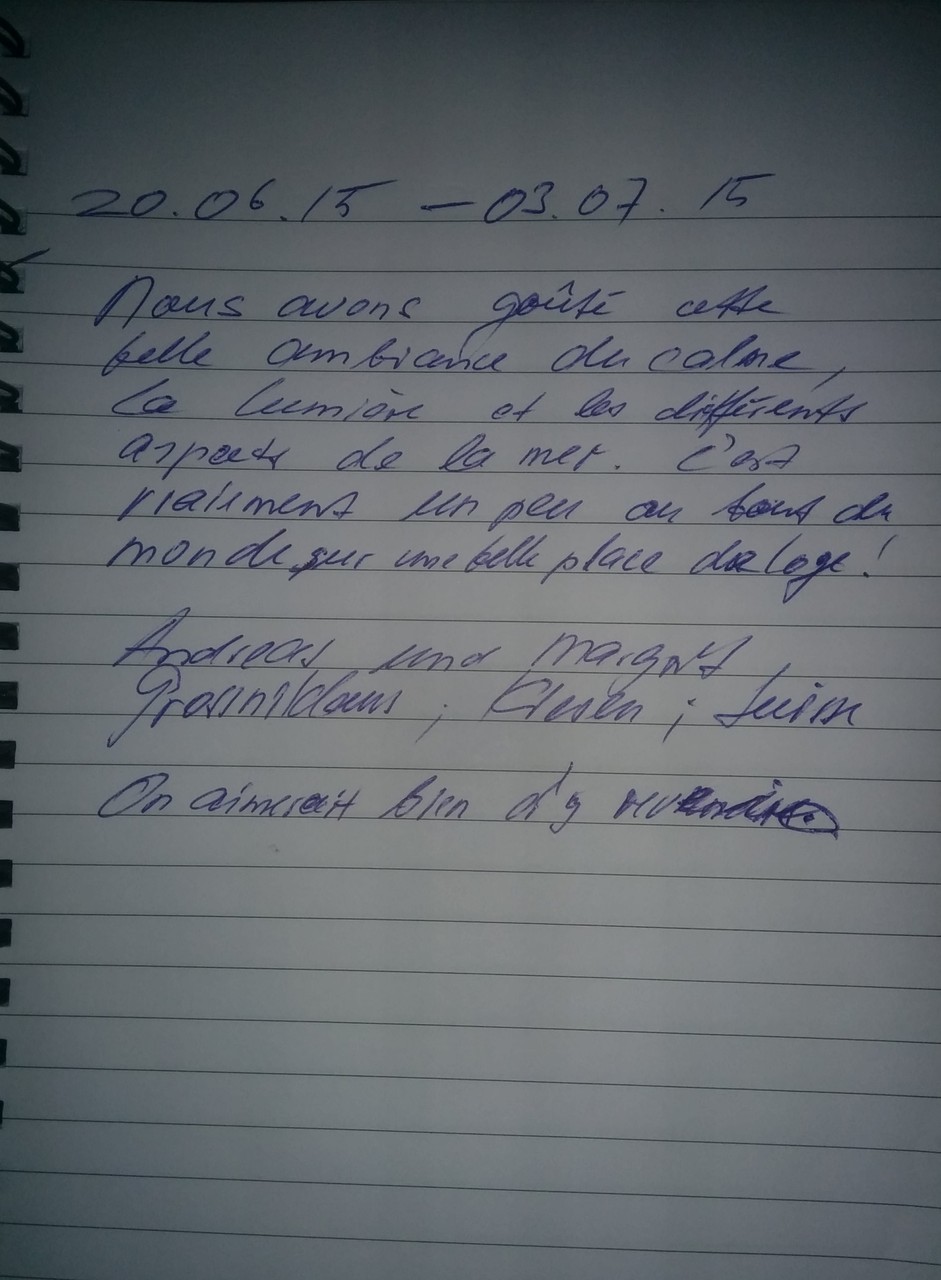 20.06.15 – 03.07.15
Nous avons goûté cette
belle ambiance du calme,
la lumière et les différents
aspects de la mer. C'est
vraiment un peu au bout du
monde, sur une belle place de loge!
Andreas und Margrit
Grossniklaus ; Kiesen ; Suisse
On aimerait bien d'y